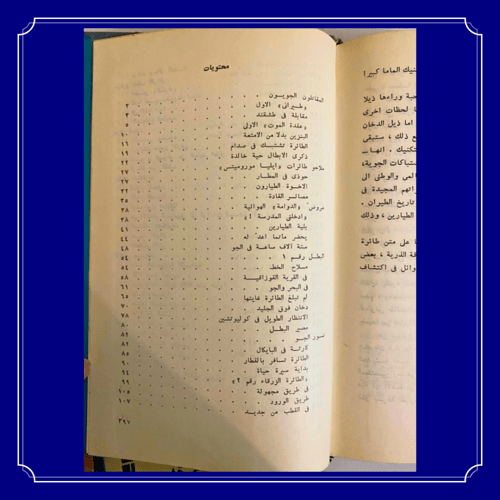 محتويات
المقاتلون الجويون
«طيراني» الاول ٣
مقابلة في طشقند ٣
«عقدة الموت» الاولى ٥
البنزين بدلا من الامتعة ١٠
الطائرة تشتبك في صدام ١٦
ذكرى الابطال حية خالدة ١٩
ملاحو طائرات «ايليا مورومیتس» ٢٢
حوذي في المطار ٢٧
الاخوة الطيارون ٣٢
مصائر القادة ٣٥
عروض «الدوامة» الهوائية ٣٨
وادخلني المدرسة ! ٣٨
بلية الطيارين ٤١
يحضر مأتما اعد له ٤٤
ستة آلاف ساعة في الجو ٤٨
البطل رقم ١
سلاح الخط ٥٤
في القرية القوزاقية ٥٤
في البحر والجو ٥٨
لم تبلغ الطائرة غايتها ٦١
دخان فوق الجليد ٦٥
الانتظار الطويل في كوليوتشين ٧٠
مصير البطل ٧٨
نسور الجو ٨٠
كارثة في البايكال ٨٢
الطائرة تسافر بالقطار ٨٥
بداية سيرة حياة ٩٤
«الطائرة الزرقاء رقم ٢» ٩٩
في طريق مجهولة ١٠٥
طريق الورود ١٠٧
في القطب من جديد
٣٩٧
تكنيك الماما كبيرا
حبة وراءها ذيلا
لحظات اخرى
اما ذيل الدخان
ع ذلك ، ستبقى
تكنيك ، انها
ستباكات الجوية،
لمى والوطني الى
راتهم المجيدة في
تاريخ الطيران .
الطيارين ، وذلك
ا على متن طائرة
قة الذرية ، بعض
وائل في اكتشاف